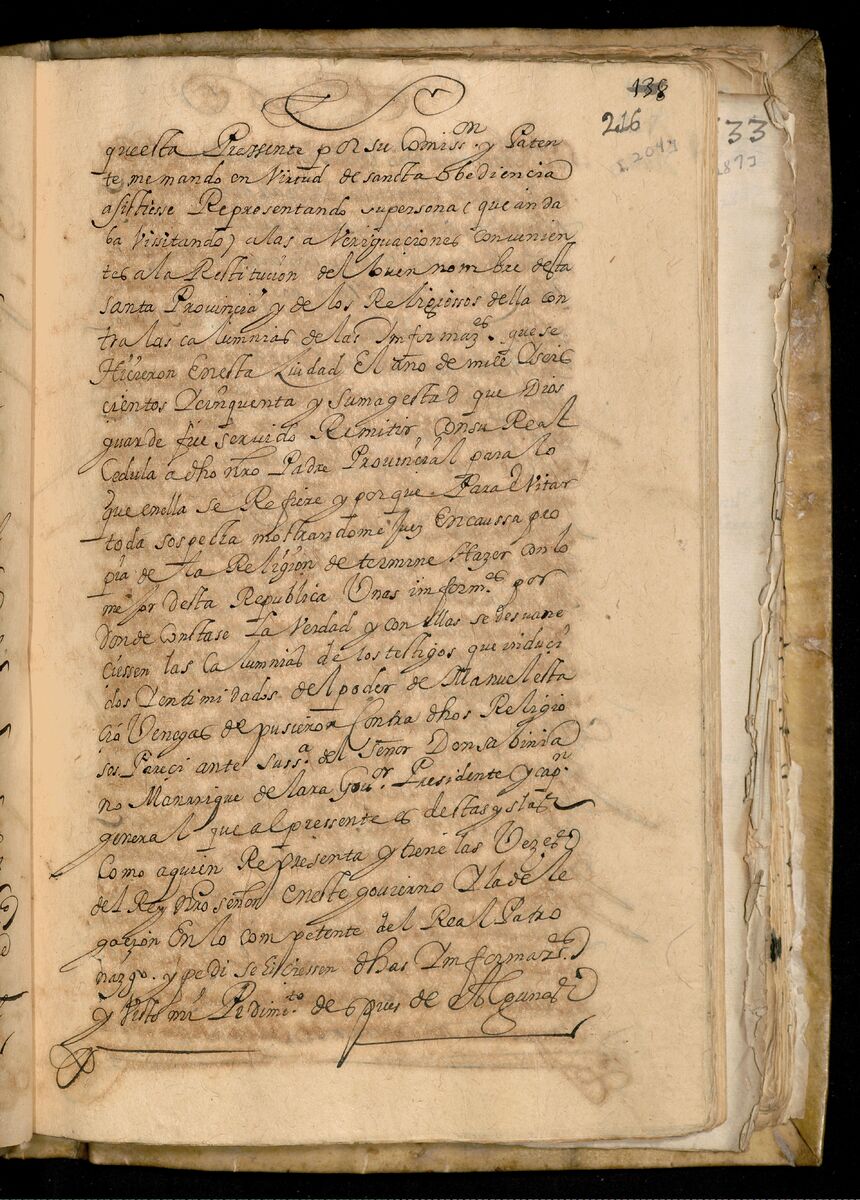 138
216
33
que esta Pressente por su Comiss.on y Paten
te me mando en Virtud de sancta obediencia
asistiesse Representando su persona (que anda
ba Vissitando) a las aVeriguaciones Convenien
tes a la Restitución del buen nombre desta
santa Provincia y de los Religiossos della con
tra las calumnias de las Informaz.es que se
Hicieron en esta Ciudad El año de mill Y seis
cientos Y cinquenta y su magestad que Dios
guarde fue servido Remitir con su Real
Cedula a dho nro Padre Provincial para lo
que en ella se Refiere y porque Para eVitar
toda sospecha mostrandome juez En caussa pro
pia de la Religion determine Hazer con lo
mejor desta Republica Unas inform.es por
donde Constase La Verdad y con ellas se desvane
ciessen las Calumnias de los testigos que induci
dos Y entimidados del poder de Manuel esta
cio Venegas depusieron Contra dhos Religio
sos Pareci ante su ss.a del Señor Don sabinia
no Manrrique de lara Gov.or Presidente y cap.n
general que al pressente es destas yslas
Como a quien Representa y tiene las Vezes
del Rey Nro señor En este govierno Y la dele
gación En lo competente del Real Patro
nazgo. y pedi se hiciessen dhas Informaz.es
y Visto mi Pedim.to despues de Algunas